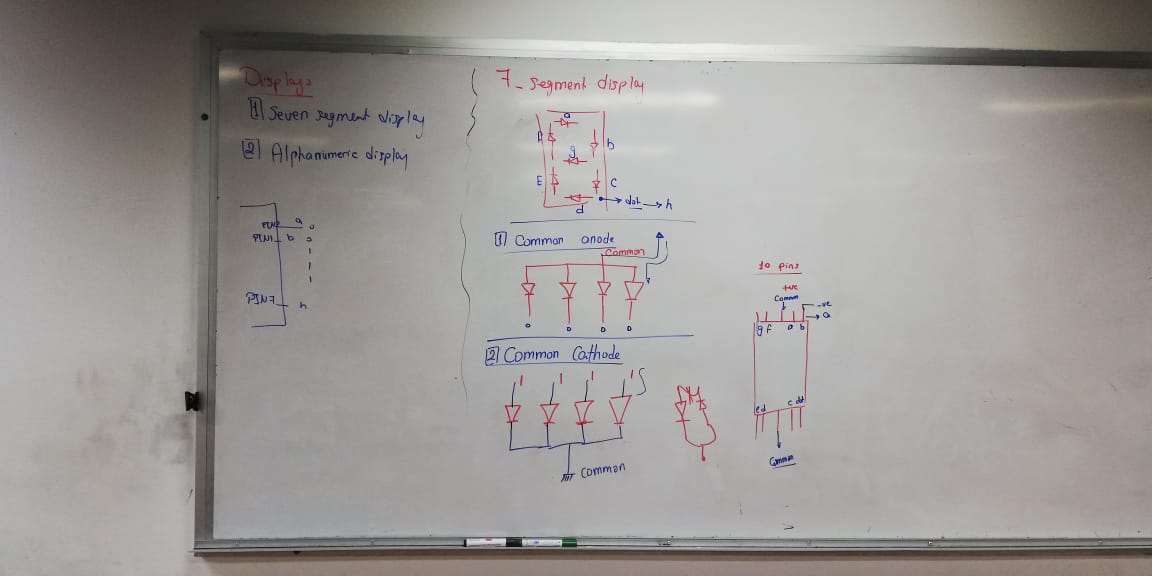 Displays
1 Seven segment display
2 Alphanumeric display
PIN1 b
PIN7 h
7_ segment display
a
b
g
E
C
d
dot → h
1 Common anode
Common
0 0 0 0
2 Common Cathode
1 1 1 1
Common
10 pins
+ve
Common
-ve
a
g f a b
e d c dot
Common